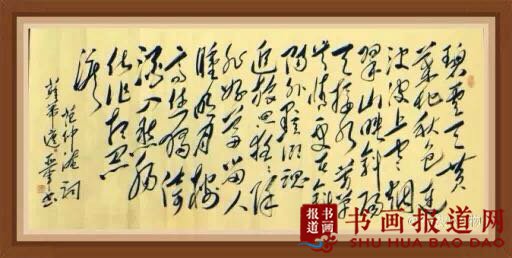 碧雲天黄
葉地秋色連
波波上寒烟
翠山映斜陽
天接水芳草
無情更在斜
陽外黯鄉魂
追旅思夜夜除
非好夢留人
睡明月樓
高休獨倚
酒入愁腸
化作相思
淚
范仲淹詞
蘇幕遮
書
书画
报道
书画报道网
SHU HUA BAO DAO